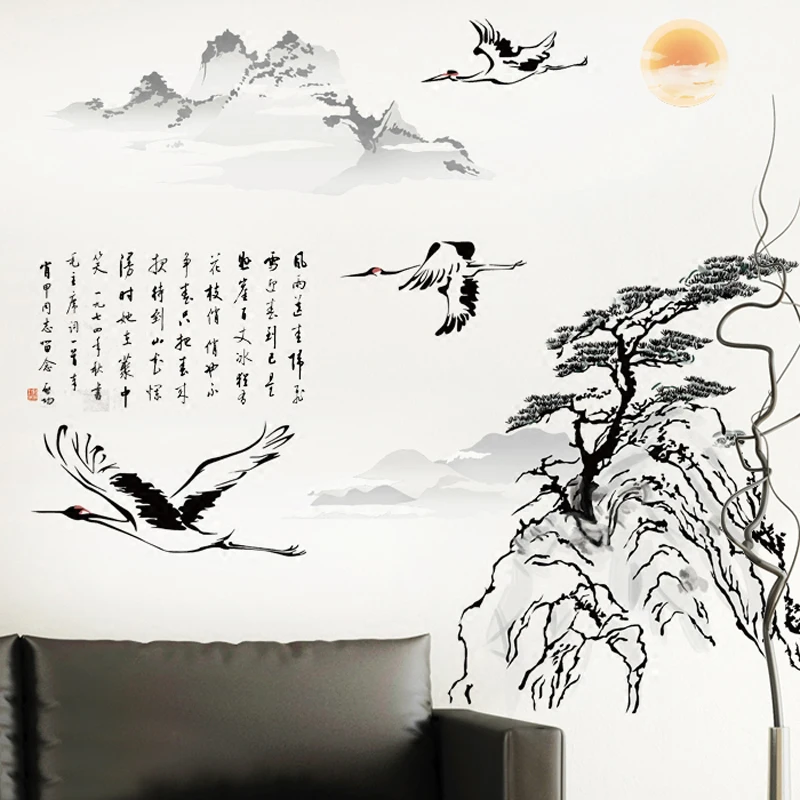 風雨送春歸飛
雪迎春到已是
懸崖百丈冰猶有
花枝俏俏也不
爭春只把春來
報待到山花爛
漫时她在叢中
笑 一九七四年秋書
毛主席詞一首奉
肖甲同志留念 启功